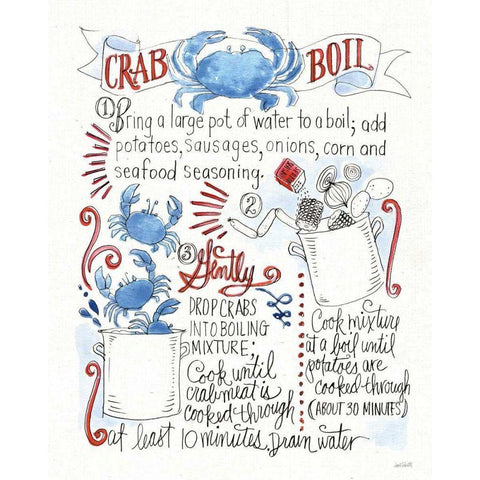 CRAB BOIL
1 Bring a large pot of water to a boil; add
potatoes, sausages, onions, corn and
seafood seasoning.
2
Cook mixture
at a boil until
potatoes are
cooked through
(ABOUT 30 MINUTES)
3 Gently
DROP CRABS
INTO BOILING
MIXTURE;
Cook until
crab meat is
cooked through
at least 10 minutes. Drain water